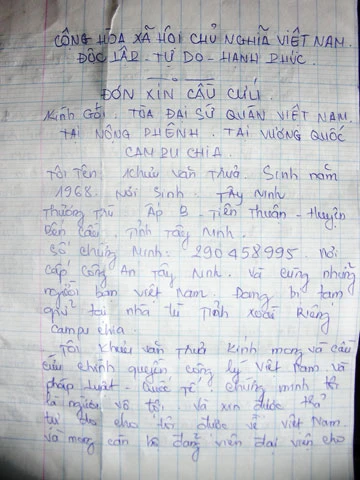 CỘNG HÒA XÃ HỘI CHỦ NGHĨA VIỆT NAM.
ĐỘC LẬP - TỰ DO - HẠNH PHÚC.
ĐƠN XIN CẦU CỨU.
Kính Gởi. TÒA ĐẠI SỨ QUÁN VIỆT NAM.
TẠI NÔNG PHÊNH. TẠI VƯƠNG QUỐC
CAMPUCHIA
Tôi Tên Khưu văn Thưở. Sinh năm
1968. Nơi Sinh. Tây Ninh
Thường Trú Ấp B - Tiên Thuận - Huyện
Bến Cầu. Tỉnh Tây Ninh.
Số chứng Minh: 290458995. Nơi
cấp Công An Tây Ninh. Và cũng những
người bạn Việt Nam. Đang bị tạm
giữ tại nhà tù Tỉnh Xoài Riêng
campu chia.
Tôi Khưu văn Thưở Kính mong và cầu
cứu chính quyền công lý Việt Nam và
pháp luật - Quốc Tế. Chứng minh tôi
là người vô tội. Và xin được thả
tự do cho tôi được về Việt Nam.
và mong cán bộ đảng viên đại viên cho